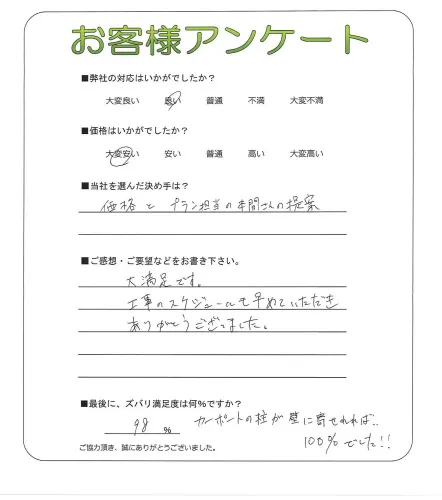 お客様アンケート
■弊社の対応はいかがでしたか?
大変良い 良い 普通 不満 大変不満
■価格はいかがでしたか?
大変安い 安い 普通 高い 大変高い
■当社を選んだ決め手は?
価格と プラン担当の本間さんの提案
■ご感想・ご要望などをお書き下さい。
大満足です。
工事のスケジュールも早めていただき
ありがとうございました。
■最後に、ズバリ満足度は何%ですか?
98 % カーポートの柱が壁に寄せれれば‥
100%でした!!
ご協力頂き、誠にありがとうございました。